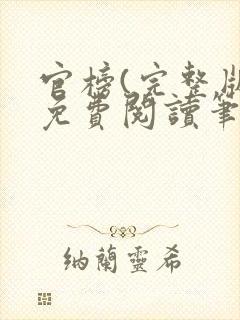 官榜(完整版
免費閱讀筆
納蘭靈希